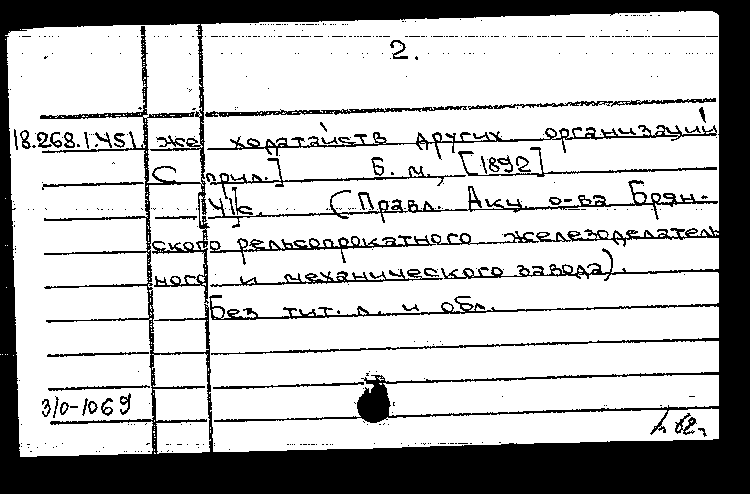 2.
18.268.1.451. же ходатайств других организаций
С прил.] Б. м., [1892]
[41]с. (Правл. Акц. о-ва Брян-
ского рельсопрокатного железоделатель
ного и механического завода).
Без тит. л. и обл.
310-1069